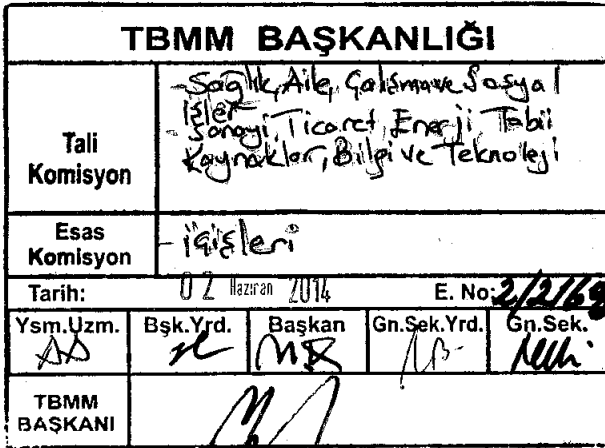 TBMM BAŞKANLIĞI
Tali
Komisyon
-Sağlık, Aile, Çalışma ve Sosyal
İşler
-Sanayi, Ticaret, Enerji, Tabii
Kaynaklar, Bilgi ve Teknoloji
Esas
Komisyon
- içişleri
Tarih: 02 Haziran 2014 E. No: 2/2169
Ysm.Uzm. Bşk.Yrd. Başkan Gn.Sek.Yrd. Gn.Sek.
TBMM
BAŞKANI